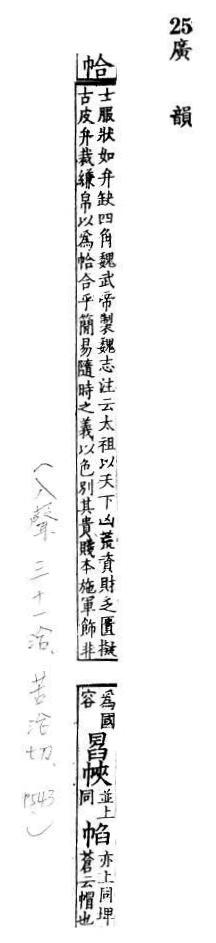 25 廣韻
帢
士服狀如弁缺四角魏武帝製魏志注云太祖以天下凶荒資財乏匱擬
古皮弁裁縑帛以為帢合乎簡易隨時之義以色別其貴賤本施軍飾非
為國
容
㡇
並上
同
亦上同埤
蒼云帽也
(入聲 三十一洽、苦洽切、P543)